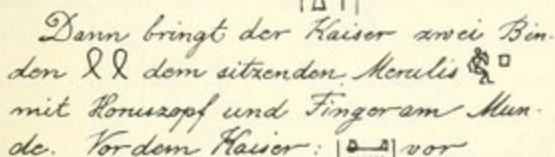 Dann bringt der Kaiser zwei Bin-
den dem sitzenden Merulis
mit Horuszopf und Finger am Mun-
de. Vor dem Kaiser: vor